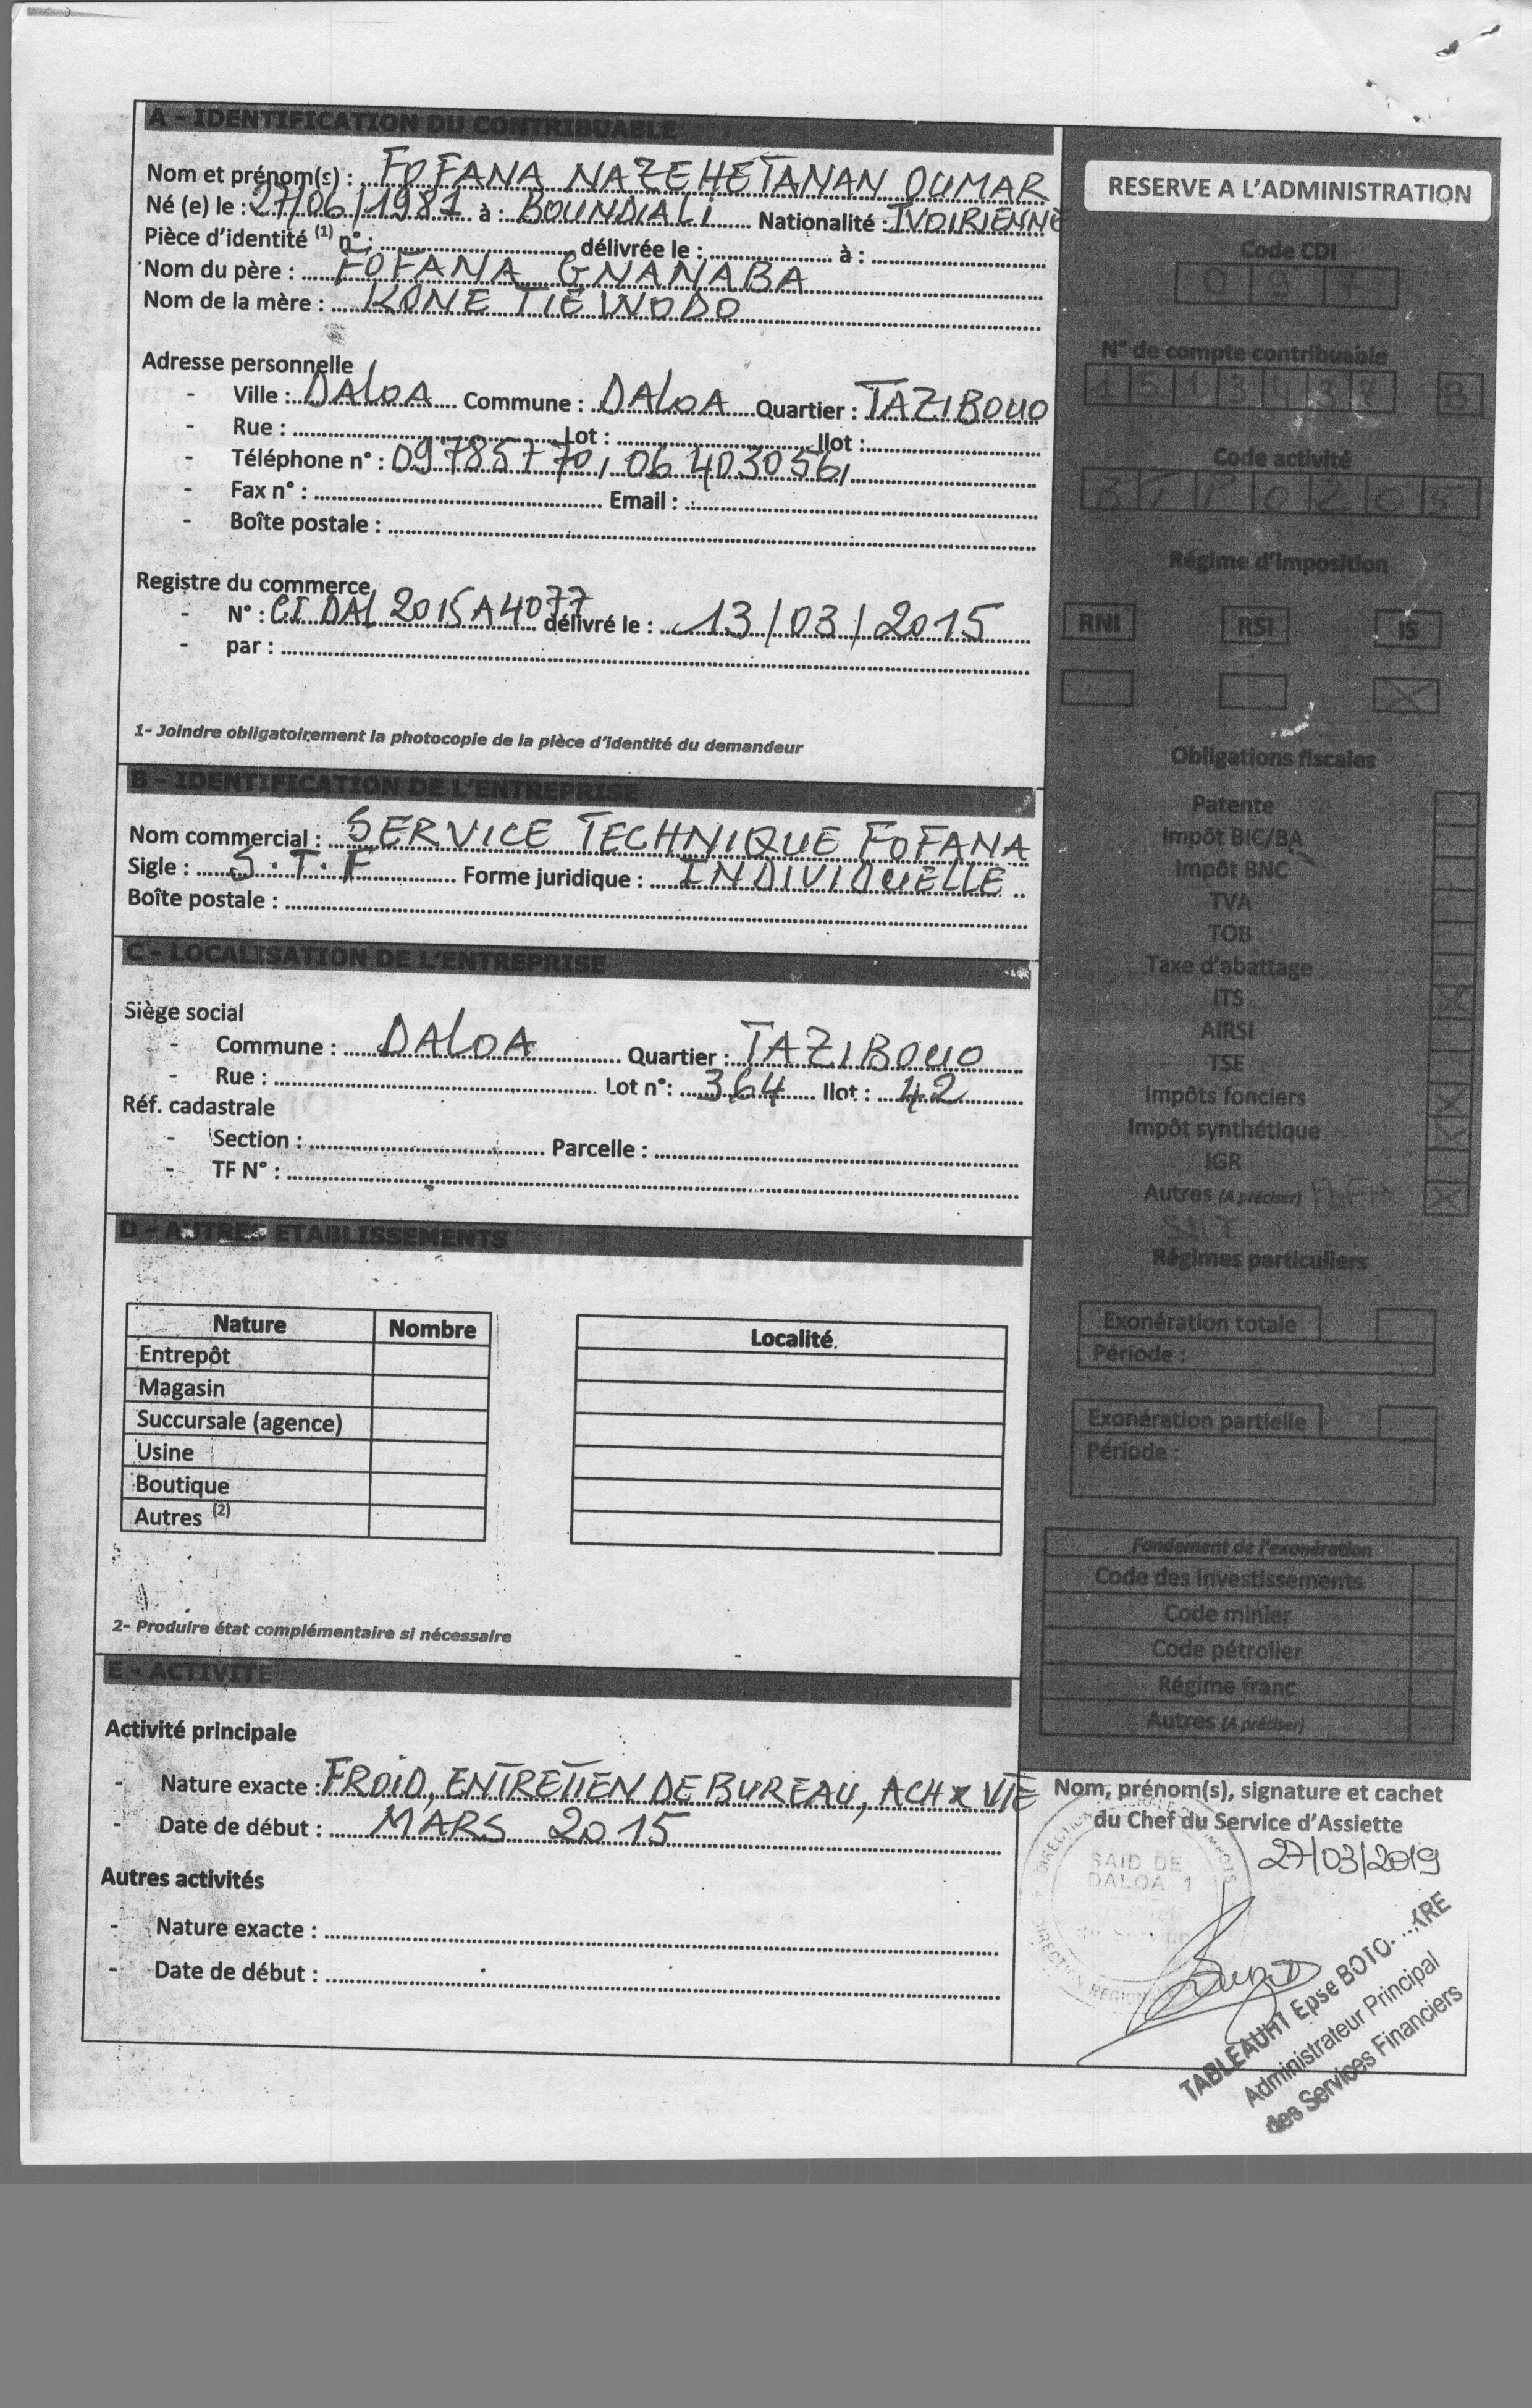 A - IDENTIFICATION DU CONTRIBUABLE
Nom et prénom(s) : FOFANA NAZEHETANAN OUMAR
Né (e) le : 27/06/1981 à : BOUNDIALI Nationalité : IVOIRIENNE
Pièce d'identité (1) n° : délivrée le : à :
Nom du père : FOFANA GNANABA
Nom de la mère : KONE TIEWODO
Adresse personnelle
- Ville : DALOA Commune : DALOA Quartier : TAZIBOUO
- Rue : Lot : Ilot :
- Téléphone n° : 09785770, 06403056,
- Fax n° : Email :
- Boîte postale :
Registre du commerce
- N° : CI DAL 2015A4077 délivré le : 13/03/2015
- par :
1- Joindre obligatoirement la photocopie de la pièce d'identité du demandeur
B - IDENTIFICATION DE L'ENTREPRISE
Nom commercial : SERVICE TECHNIQUE FOFANA
Sigle : S.T.F Forme juridique : INDIVIDUELLE
Boîte postale :
C - LOCALISATION DE L'ENTREPRISE
Siège social
- Commune : DALOA Quartier : TAZIBOUO
- Rue : Lot n° : 364 Ilot : 42
Réf. cadastrale
- Section : Parcelle :
- TF N° :
D - AUTRES ETABLISSEMENTS
Nature Nombre Localité
Entrepôt
Magasin
Succursale (agence)
Usine
Boutique
Autres (2)
2- Produire état complémentaire si nécessaire
E - ACTIVITE
Activité principale
- Nature exacte : FROID, ENTRETIEN DE BUREAU, ACH x VTE
- Date de début : MARS 2015
Autres activités
- Nature exacte :
- Date de début :
RESERVE A L'ADMINISTRATION
Code CDI
0
N° de compte contribuable
1513437 B
Code activité
3TP0205
Régime d'imposition
RNI RSI IS
Obligations fiscales
Patente
Impôt BIC/BA
Impôt BNC
TVA
TOB
Taxe d'abattage
ITS
AIRSI
TSE
Impôts fonciers
Impôt synthétique
IGR
Autres (A préciser)
Régimes particuliers
Exonération totale
Période :
Exonération partielle
Période :
Fondement de l'exonération
Code des investissements
Code minier
Code pétrolier
Régime franc
Autres (A préciser)
Nom, prénom(s), signature et cachet
du Chef du Service d'Assiette
27/03/2019
SAID DE
DALOA 1
TABLEAUHI Epse BOTO
Administrateur Principal
des Services Financiers